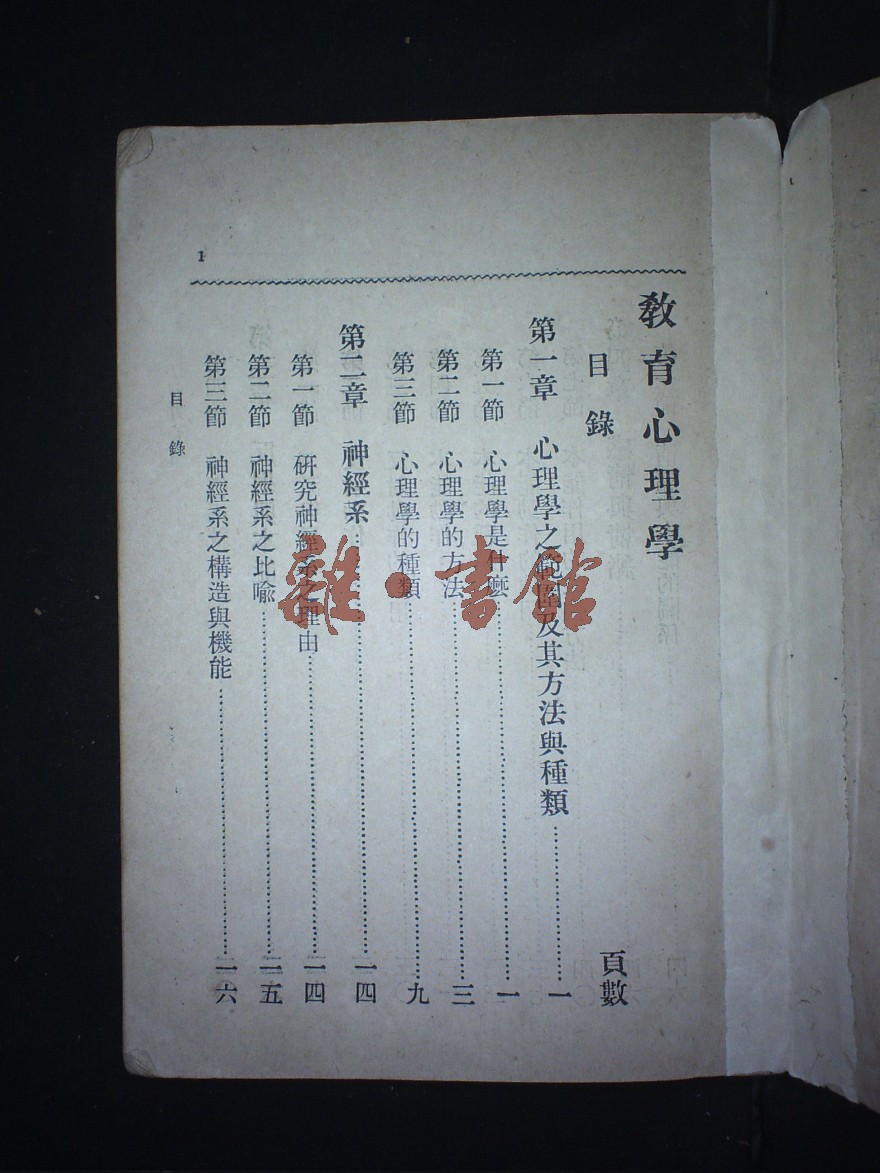 教育心理學
目錄 頁數
第一章 心理學之範圍及其方法與種類…………一
第一節 心理學是什麼…………一
第二節 心理學的方法…………三
第三節 心理學的種類…………九
第二章 神經系…………一四
第一節 研究神經系之理由…………一四
第二節 神經系之比喻…………一五
第三節 神經系之構造與機能…………一六
目錄
1
雜·書館